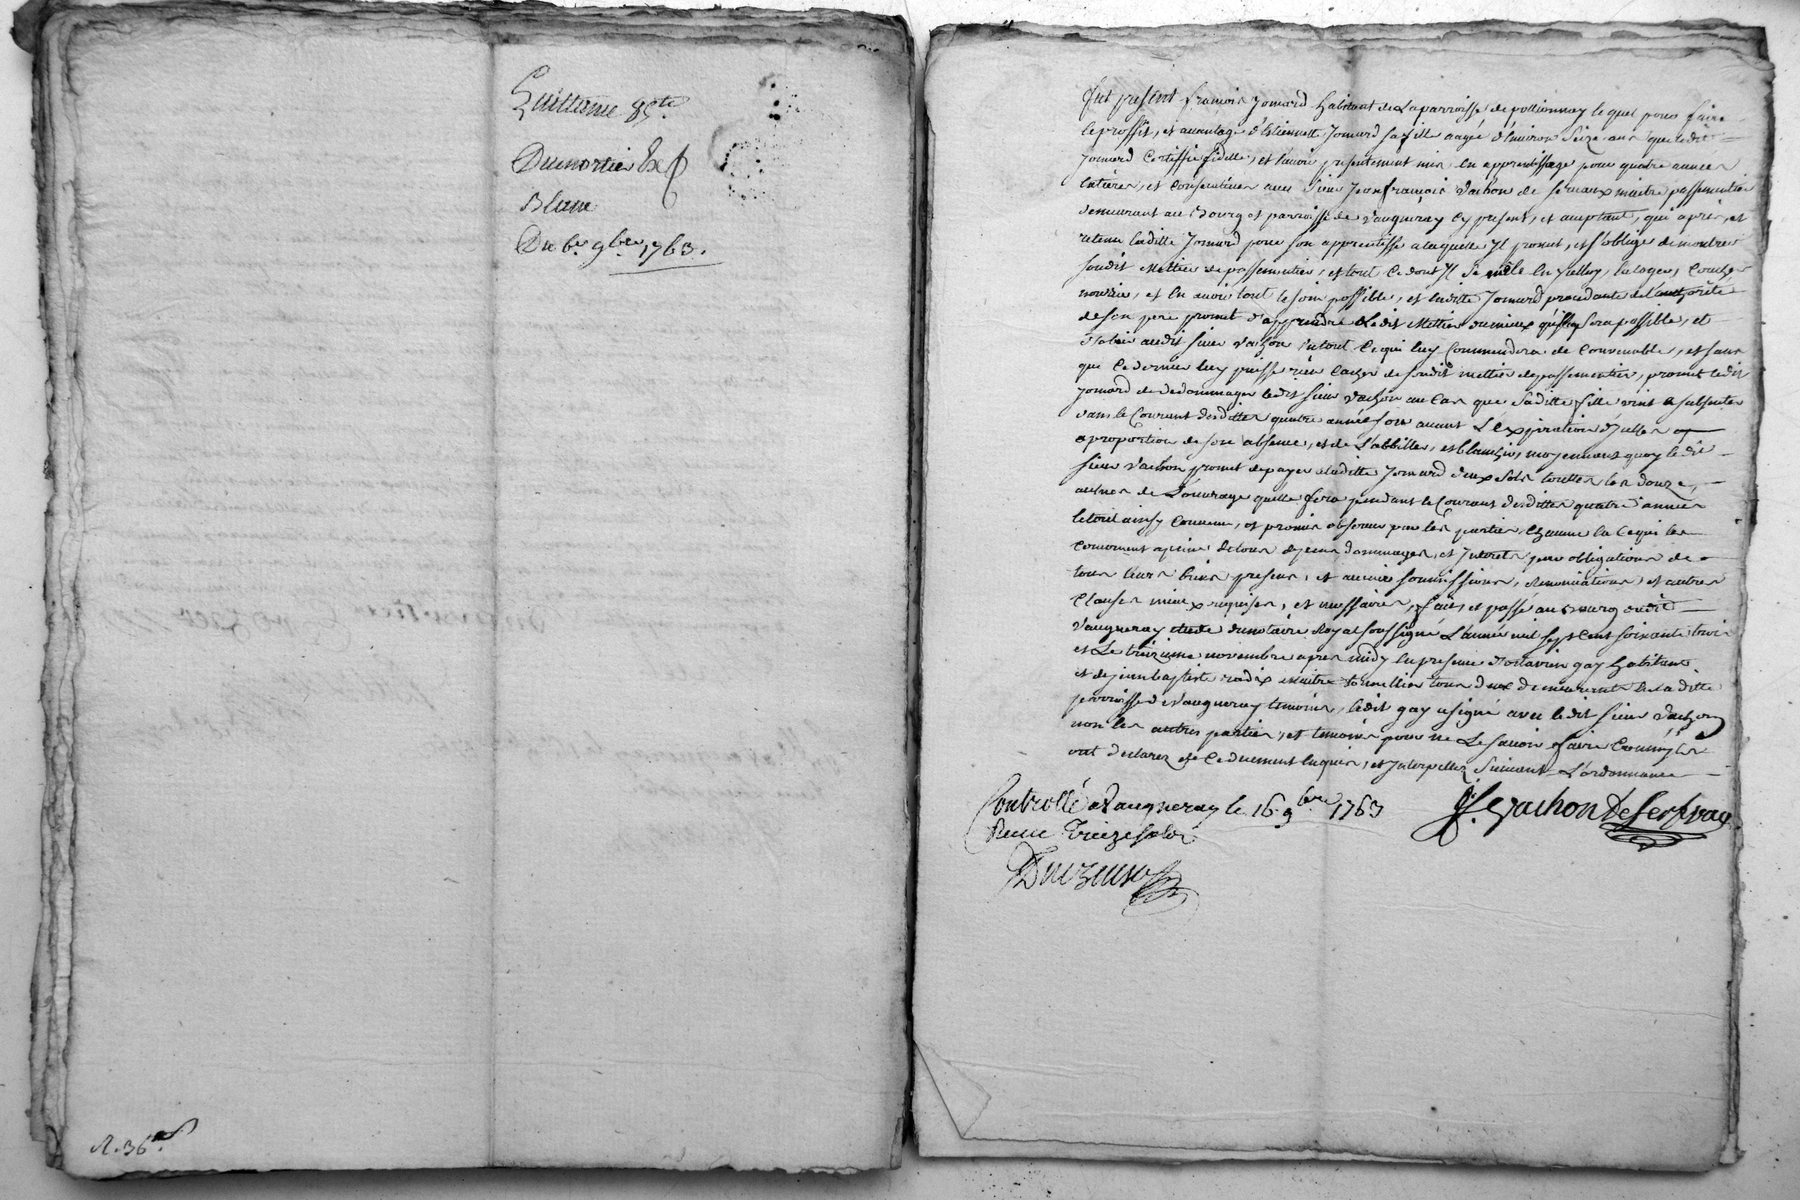 Quittance 85tt
Dumortier Ex
Blanc
Du 6e 9bre 1763.
R. 36s
Fut present francois Jomard habitant de La parroisse de pollionnay lequel pour faire
le proffit, et avantage d'Estiennette Jomard sa fille aagée d'environ Seize ans que ledit
Jomard Certiffie fidelle, et l'avoir presentement mis En apprentissage pour quatre années
Entières, et Consecutives avec Sieur Jean francois Vachon de fernaux maitre passementier
demeurant au Bourg et parroisse de Vaugneray Cy present, et acceptant, qui a pris, et
retenu ladille Jomard pour son apprentisse a laquelle Il promet, et s'oblige de montrer
sondit Mettier de passementier, et tout Ce dont Il Se mêle En Icelluy, la loger, Coucher
nourrir, et En avoir tout le soin possible, et laditte Jomard procedante de l'authorité
de son pere promet d'apprendre Ledit Mettier du mieux qu'il luy Sera possible, et
d'obeir audit sieur Vachon En tout Ce qui luy Commendera de Convenable, et sans
que Ce dernier luy puisse rien Cacher de sondit mettier de passementier, promet ledit
Jomard de dedommager ledit sieur Vachon au Cas que Saditte fille vint a s'absenter
dans le Courant desdittes quatre années son avant L'Expiration d'Icelles
a proportion de son absence, et de L'abbiller, et blanchir, moyennant quoy ledit
sieur Vachon promet de payer a laditte Jomard deux Sols touttes les douze
aulnes de L'ouvrage quelle fera pendant le Courant desdittes quatre années
le tout ainsy Convenu, et promis observer par les parties Chacune En Ce qui les
Concernent a peine de tous depens dommages, et Interets par obligations de
tous leurs biens presens, et avenir soumissions, renonciations, et autres
Clauses mieux requises, et necessaires, fait, et passé au Bourg dudit
Vaugneray etude du notaire Royal soussigné L'année mil sept Cent soixante trois
et Le treizieme novembre apres midy En presence d'octavien gay habitant
et de jean baptiste radix maitre tonnellier tous deux demeurants En laditte
parroisse de Vaugneray temoins, ledit gay a signé avec ledit sieur Vachon
non les autres parties, et temoins pour ne Le savoir faire Comm'ils
ont declarez de Ce duement Enquis, et Interpellez Suivant L'ordonnance
Controllé a Vaugneray le 16. 9bre 1763
Recu Treize sols
J. f. Vachon De fernaux